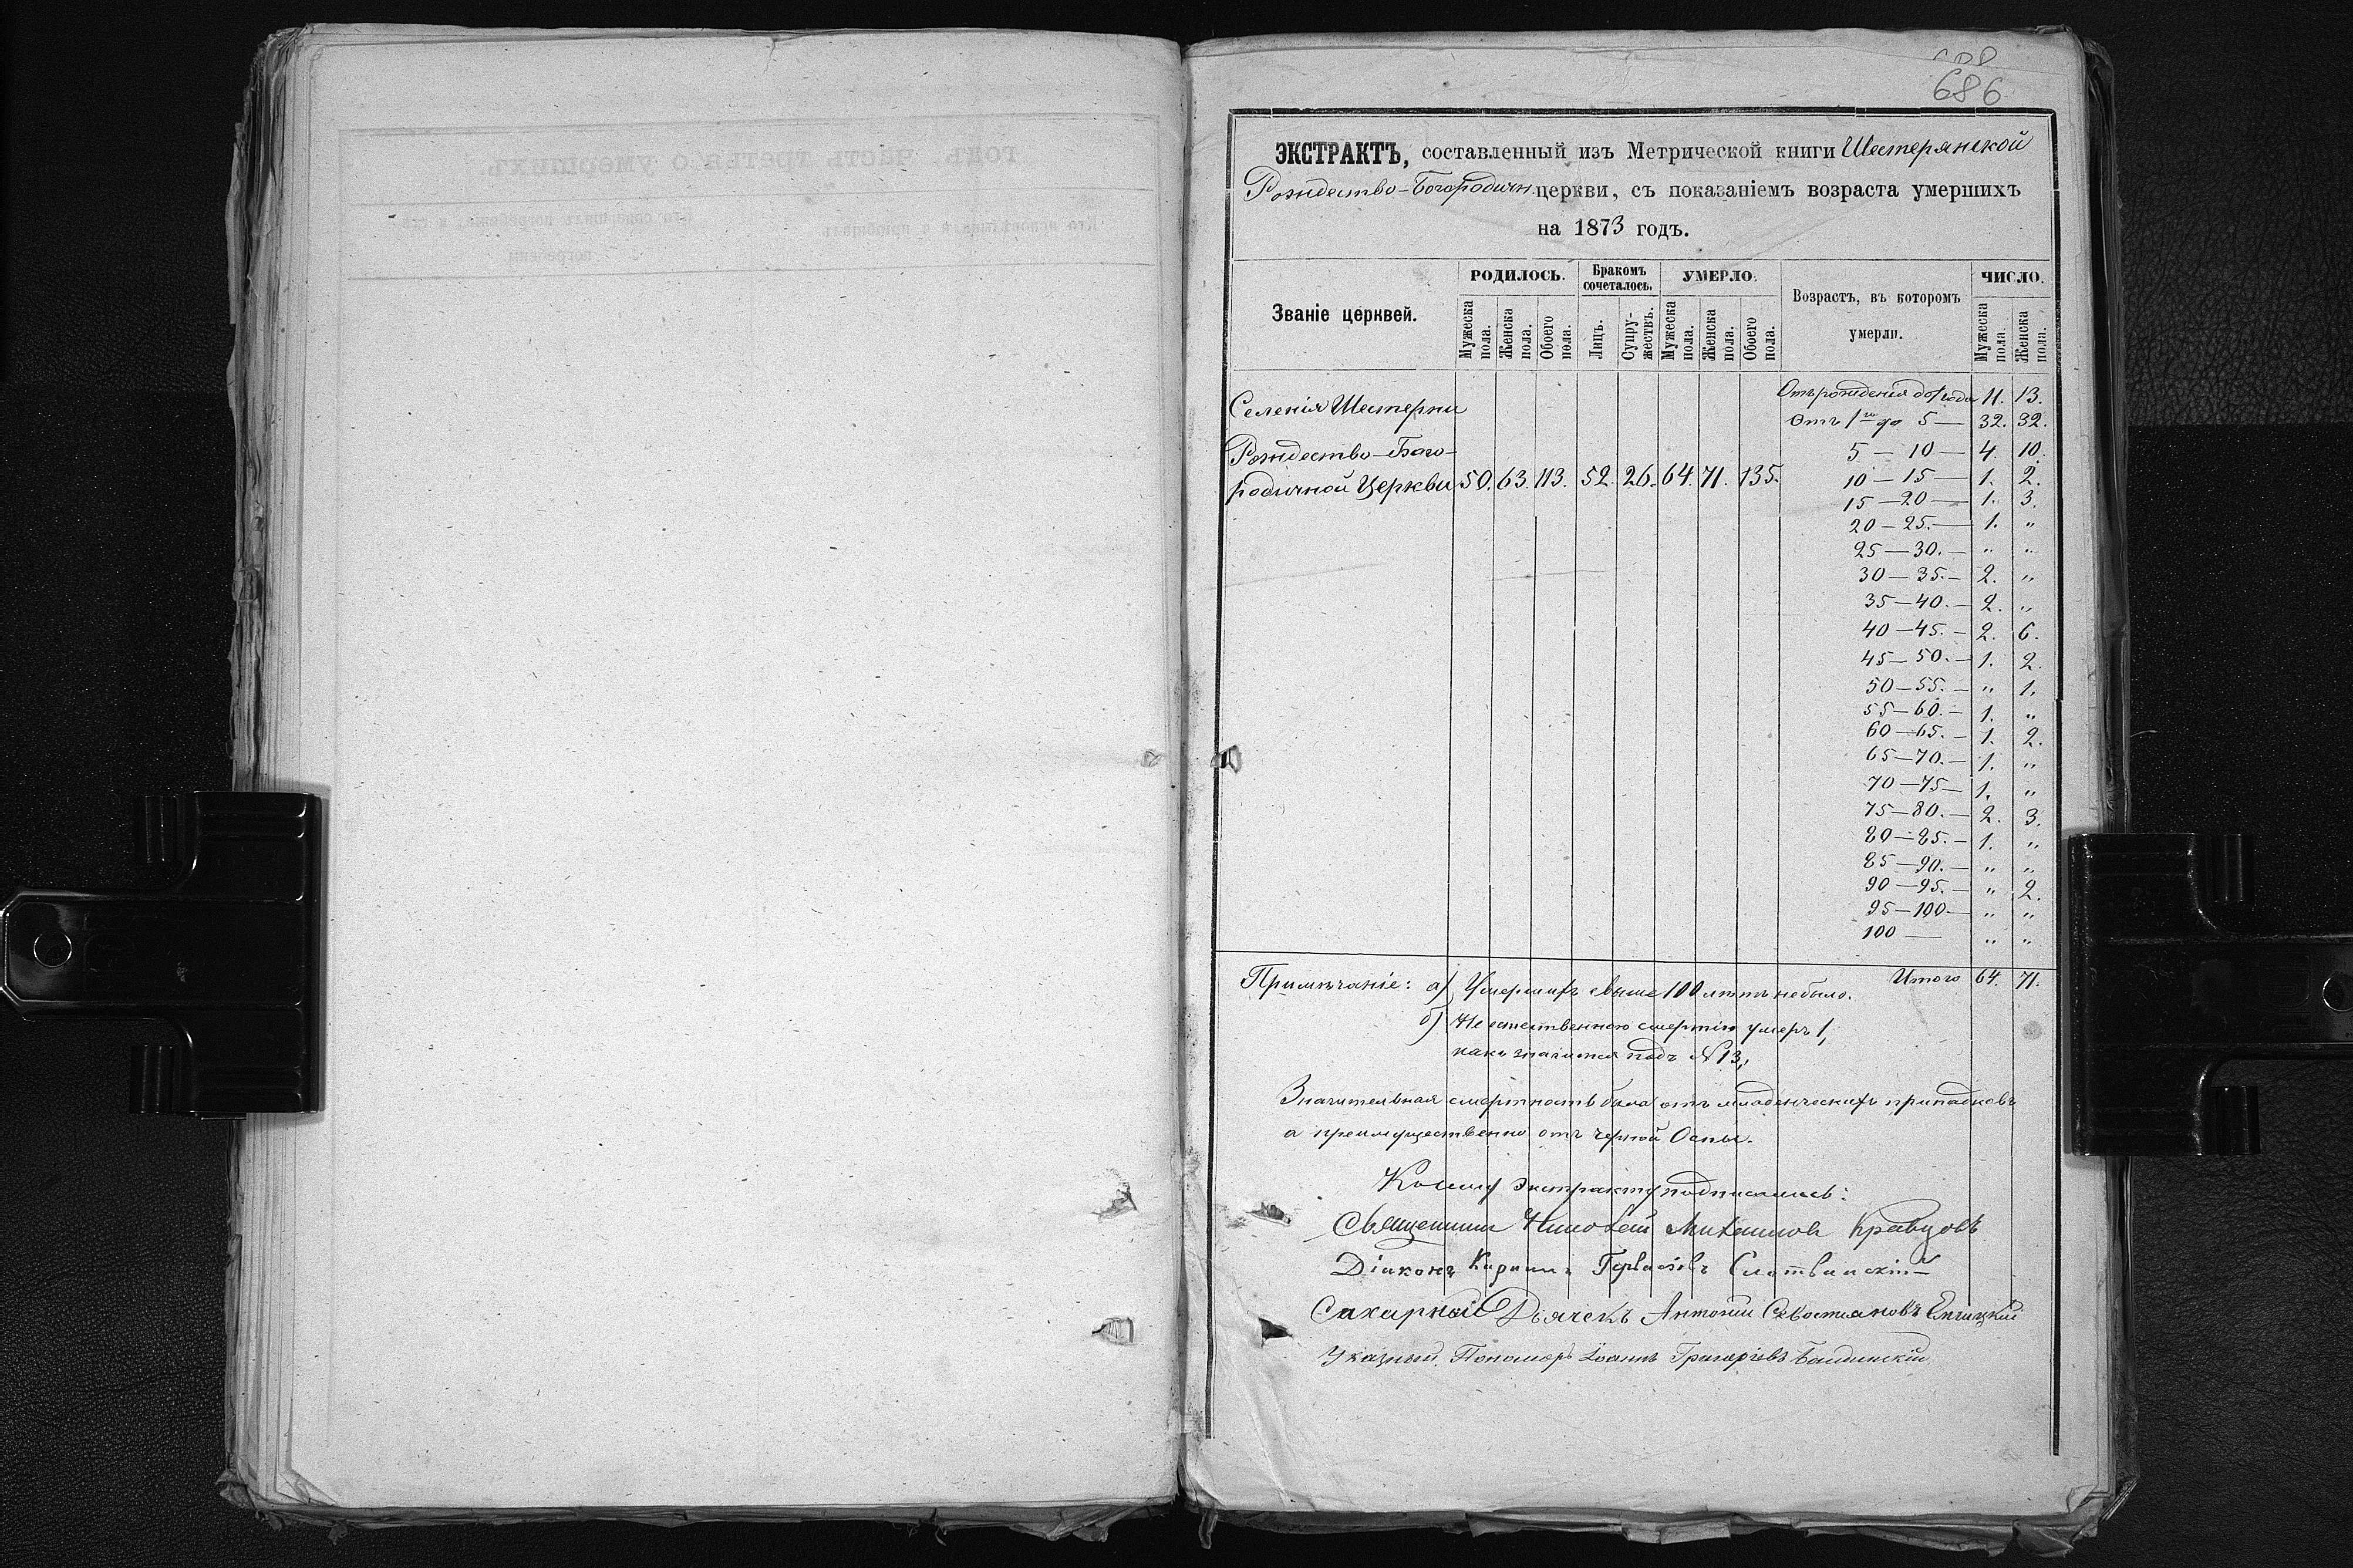 686
ЭКСТРАКТЪ, составленный изъ Метрической книги Шестерянской
Рождество-Богородичн. церкви, съ показаніемъ возраста умершихъ
на 1873 годъ.
Званіе церквей.
РОДИЛОСЬ.
Бракомъ сочеталось.
УМЕРЛО.
Возрастъ, въ которомъ умерли.
ЧИСЛО.
Мужеска пола. Женска пола. Обоего пола. Лицъ. Супружествъ. Мужеска пола. Женска пола. Обоего пола. Мужеска пола. Женска пола.
Селенія Шестерни
Рождество-Бого-
родичной Церкви 50. 63. 113. 52. 26. 64. 71. 135.
Отъ рожденія до 1 года 11. 13.
Отъ 1го до 5 — 32. 32.
5 — 10 — 4. 10.
10 — 15 — 1. 2.
15 — 20 — 1. 3.
20 — 25. — 1. „
25 — 30. — „ „
30 — 35. — 2. „
35 — 40. — 2. „
40 — 45. — 2. 6.
45 — 50. — 1. 2.
50 — 55. — „ 1.
55 — 60. — 1. „
60 — 65. — 1. 2.
65 — 70. — 1. „
70 — 75 — 1. „
75 — 80. — 2. 3.
80 — 85. — 1. „
85 — 90. — „ „
90 — 95. — „ 2.
95 — 100 — „ „
100 — „ „
Итого 64. 71.
Примѣчаніе: а) Умершихъ свыше 100 лѣтъ небыло.
б) Не естественною смертію умеръ 1,
какъ значится подъ № 13,
Значительная смертность была отъ младенческихъ припадковъ
а преимущественно отъ черной Оспы.
К сему экстракту подписались:
Священник Михаиловъ Кравцовъ
Діаконъ Кириллъ Гервасіевъ
Дьячекъ Антоній Севостіановъ
Указный Пономарь Іоаннъ Григоріевъ